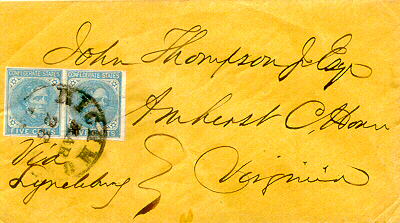 CONFEDERATE STATES CONFEDERATE STATES
FIVE CENTS
John Thompson Jr Esq
Amherst C. House
Via
Lynchburg
Virginia